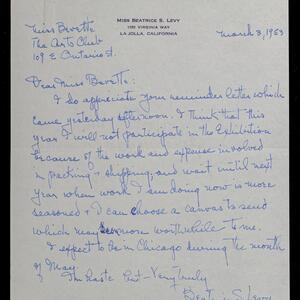 MISS BEATRICE S. LEVY
1150 VIRGINIA WAY
LA JOLLA, CALIFORNIA
March 3, 1953
Miss Beretta
The Arts Club
109 E Ontario St.
Dear Miss Beretta:
I do appreciate your reminder letter which
came yesterday afternoon. I think that this
year I will not participate in the Exhibition
because of the work and expense involved
in packing & shipping, and wait until next
year when work I am doing now is more
seasoned & I can choose a canvas to send
which may be more worthwhile to me.
I expect to be in Chicago during the month
of May.
In haste but - Very Truly
Beatrice S. Levy